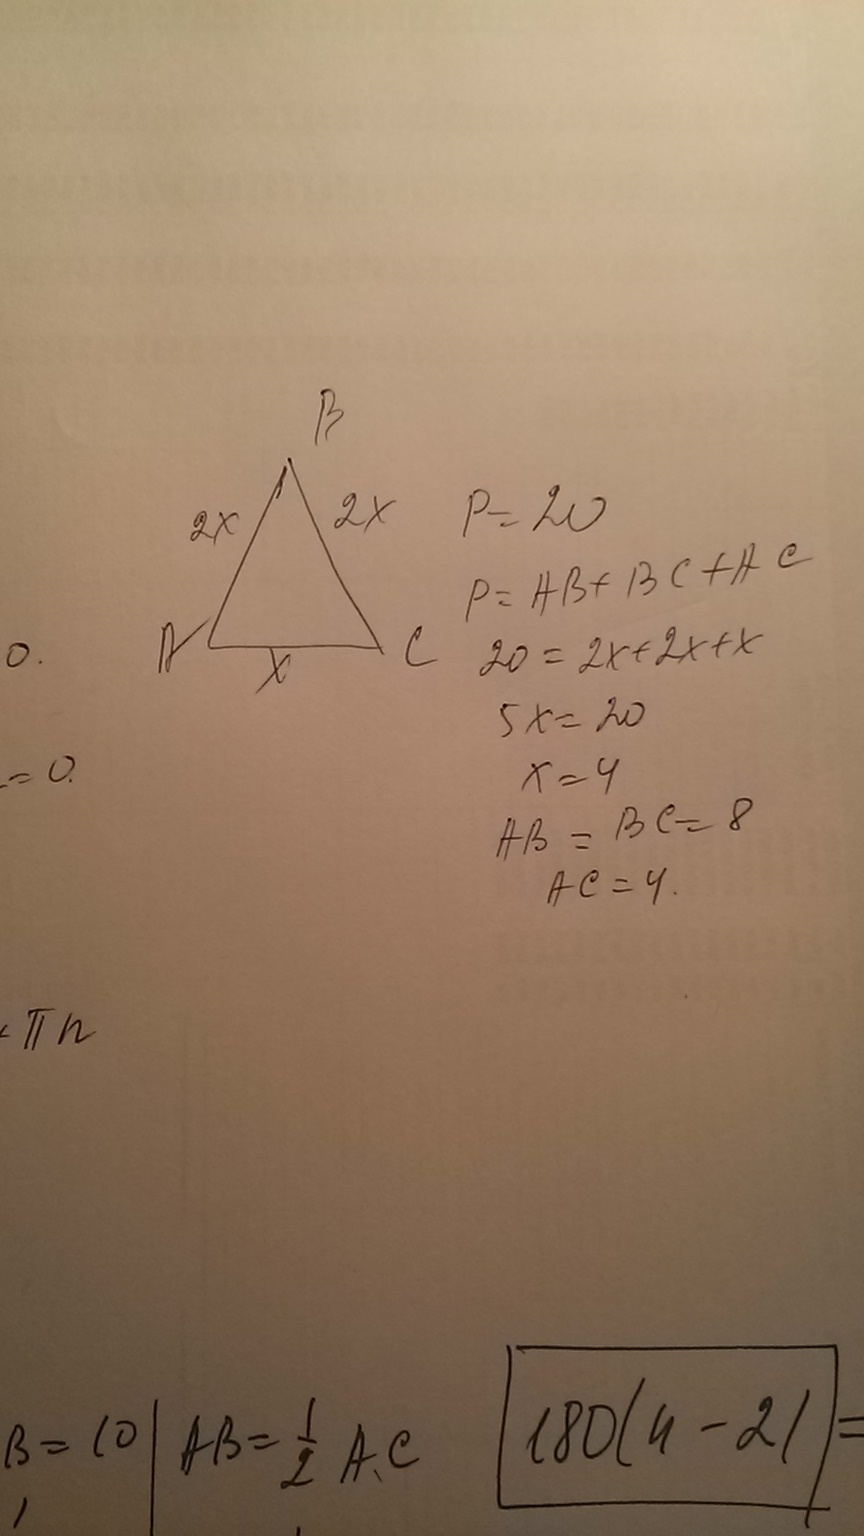 B
2x
2x
A
C
x
P=20
P=AB+BC+AC
20=2x+2x+x
5x=20
x=4
AB=BC=8
AC=4.
0.
=0.
πn
B=10
AB=1/2 AC
180(4-2)=